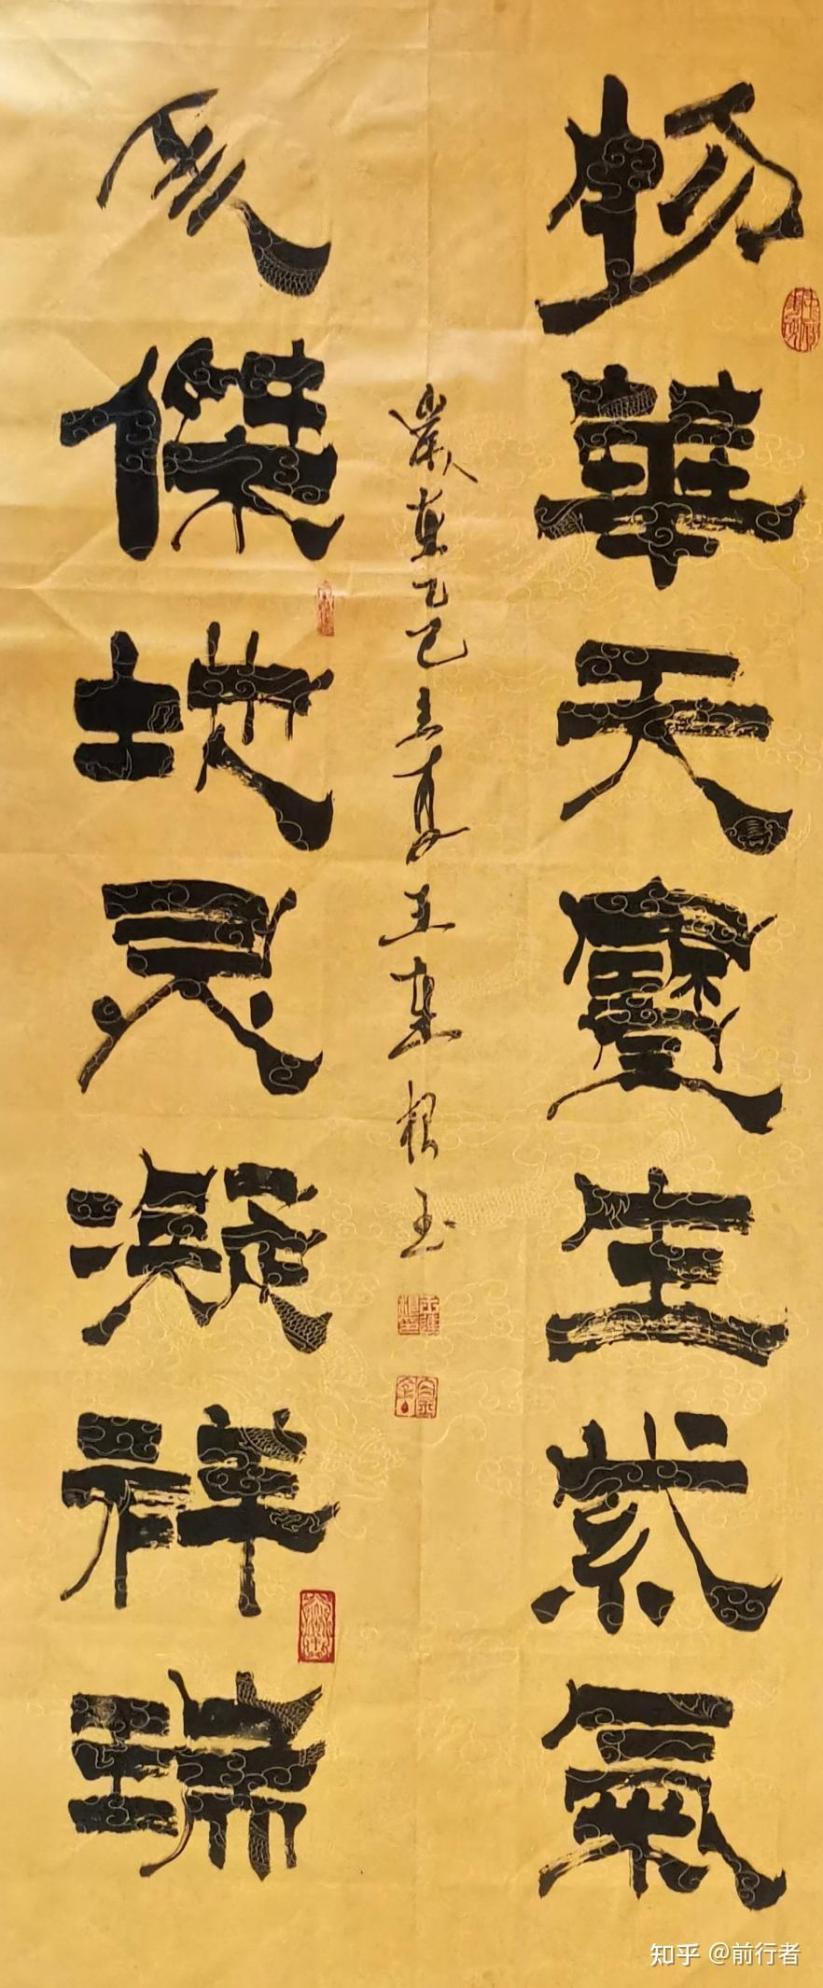 物華天寶生紫氣
歲在乙巳立夏王
人傑地灵凝祥瑞
知乎 @前行者